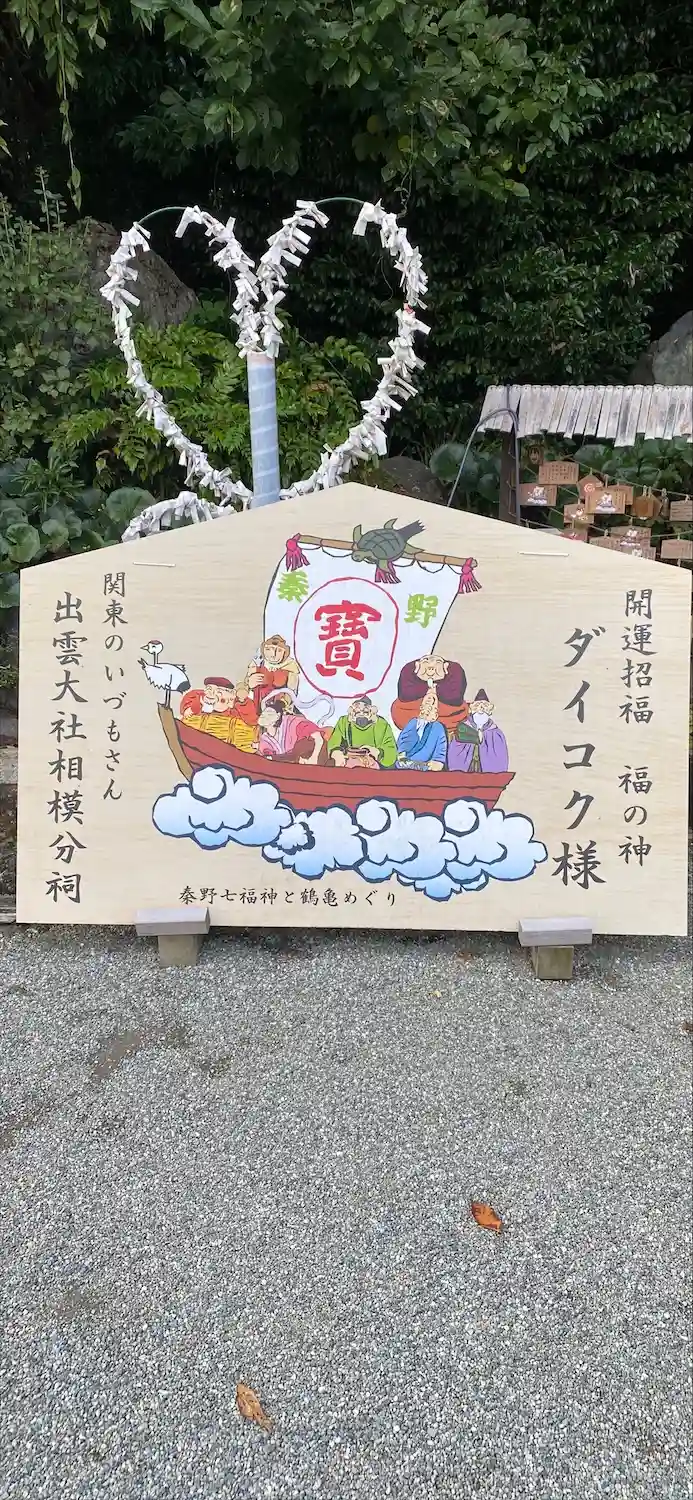 開運招福 福の神
ダイコク様
秦野
寶
関東のいづもさん
出雲大社相模分祠
秦野七福神と鶴亀めぐり